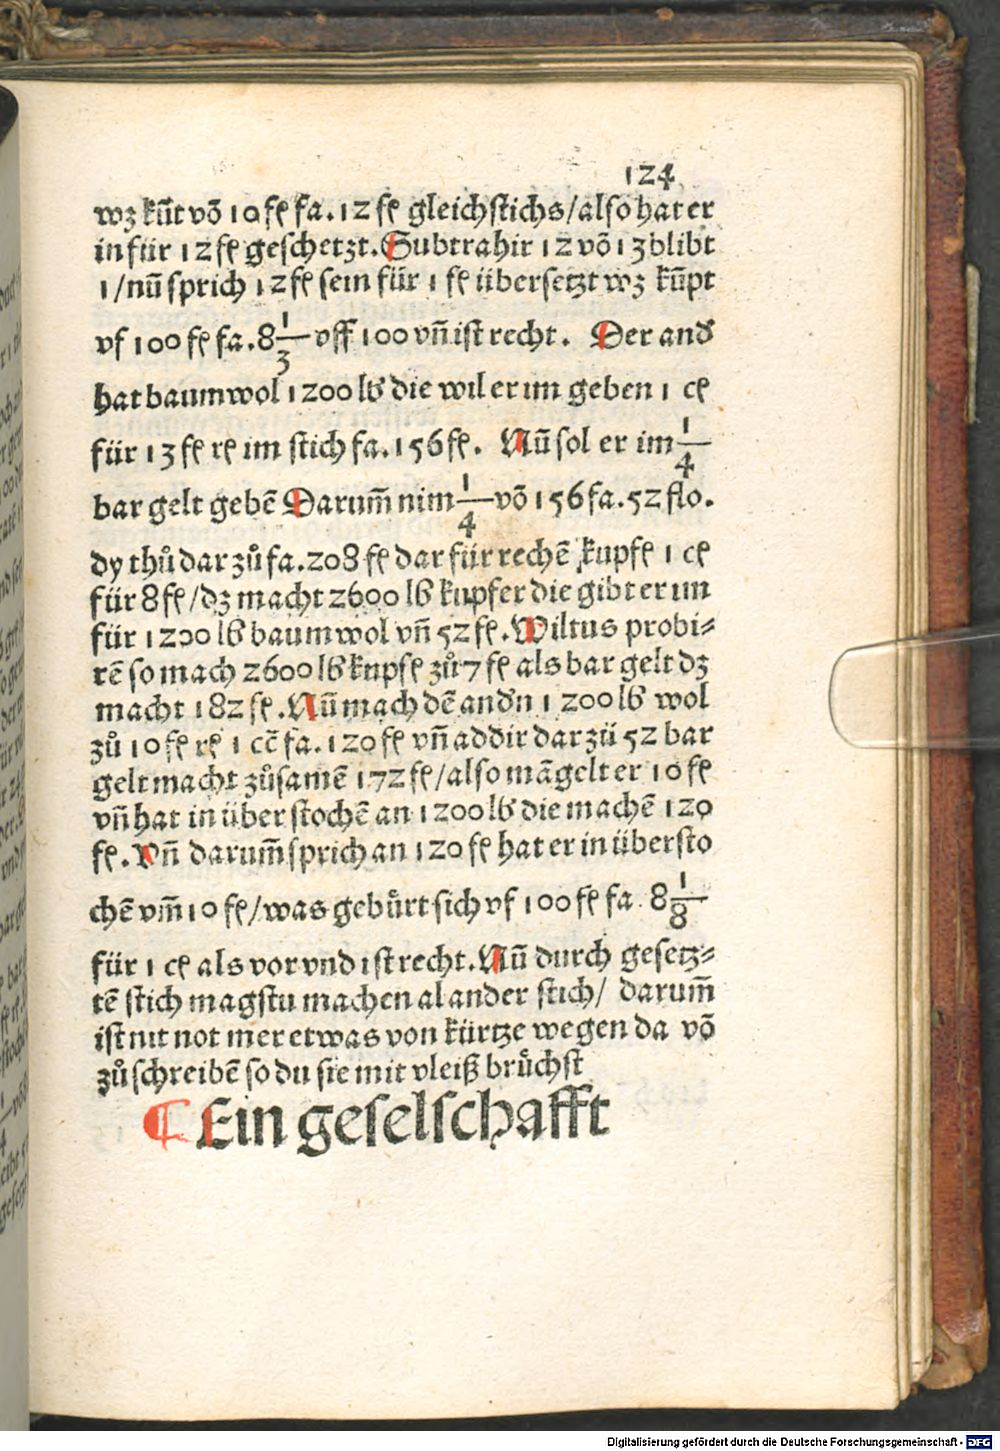 124
wz kūt võ 10 fl̄ fa. 12 fl̄ gleichstichs/also hat er
in für 12 fl̄ geschetzt. Subtrahir 12 võ 13 blibt
1/nū sprich 12 fl̄ sein für 1 fl̄ übersetzt wz kūpt
vf 100 fl̄ fa. 8 1/3 vff 100 vñ ist recht. Der and̕
hat baumwol 1200 lb die wil er im geben 1 cē
für 13 fl̄ rē im stich fa. 156 fl̄. Nū sol er im 1/4
bar gelt gebē Darum̄ nim 1/4 võ 156 fa. 52 flo.
dy thů dar zů fa. 208 fl̄ dar für rechē kupfē 1 cē
für 8 fl̄/dz macht 2600 lb kupfer die gibt er im
für 1200 lb baumwol vñ 52 fl̄. Wiltus probi⸗
rē so mach 2600 lb kupfē zů 7 fl̄ als bar gelt dz
macht 182 fl̄. Nū mach dē and̕n 1200 lb wol
zů 10 fl̄ rē 1 cē fa. 120 fl̄ vñ addir dar zů 52 bar
gelt macht zůsamē 172 fl̄/also māgelt er 10 fl̄
vñ hat in über stochē an 1200 lb die machē 120
fl̄. Vñ darum̄ sprich an 120 fl̄ hat er in übersto
chē vm̄ 10 fl̄/was gebůrt sich vf 100 fl̄ fa. 8 1/8
für 1 cē als vor vnd ist recht. Nū durch gesetz⸗
tē stich magstu machen al ander stich/ darum̄
ist nit not mer etwas von kürtze wegen da võ
zů schreibē so du sie mit vleiß brůchst
¶ Ein geselschafft
Digitalisierung gefördert durch die Deutsche Forschungsgemeinschaft - DFG